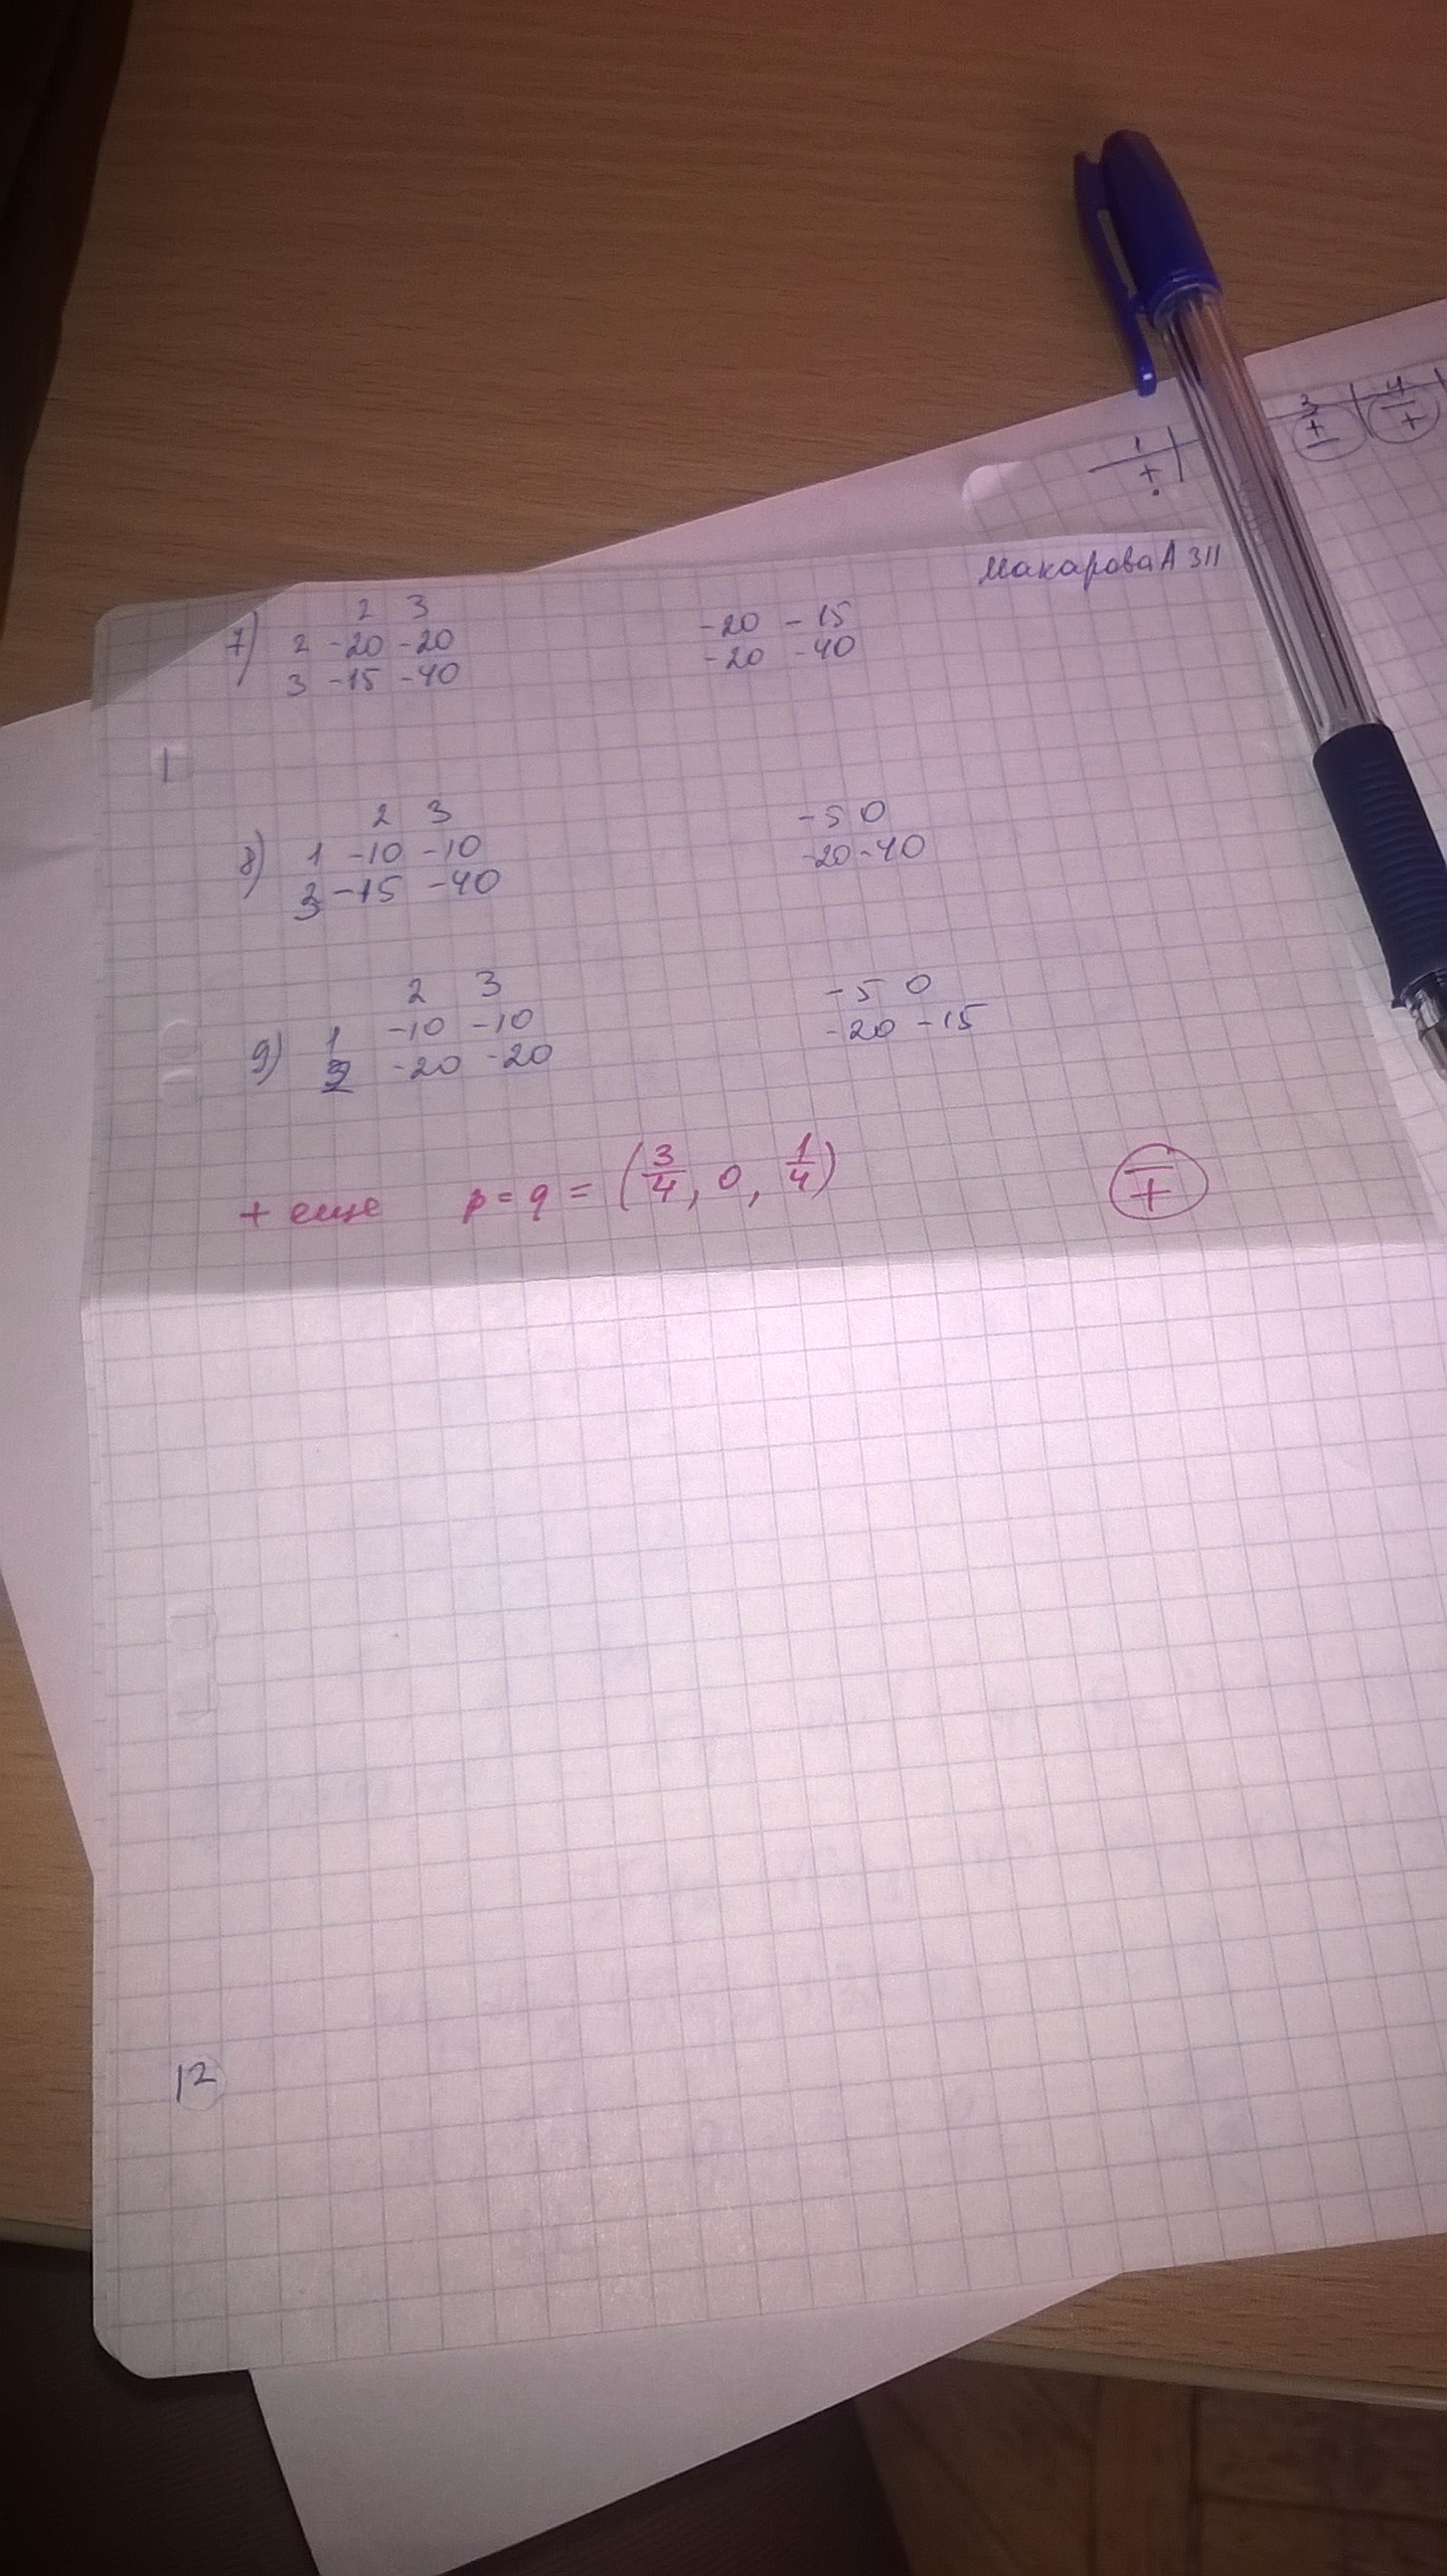 1 3 4
+ ± ∓
Макарова А 311
2 3
7) 2 -20 -20 -20 -15
3 -15 -40 -20 -40
1
2 3 -5 0
8) 1 -10 -10 -20 -40
3 -15 -40
2 3 -5 0
9) 1 -10 -10 -20 -15
2 -20 -20
+ еще p = q = (3/4, 0, 1/4) ∓
12